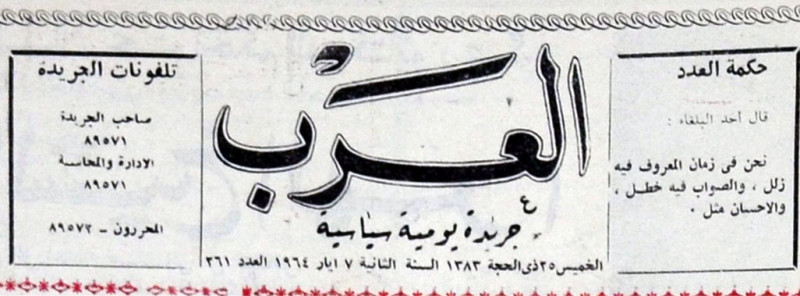 حكمة العدد
قال أحد البلغاء :
نحن في زمان المعروف فيه
زلل ، والصواب فيه خطل ،
والاحسان مثل ٠
العرب
جريدة يومية سياسية
الخميس ٢٥ ذي الحجة ١٣٨٣ السنة الثانية ٧ ايار ١٩٦٤ العدد ٣٦١
تلفونات الجريدة
صاحب الجريدة
٨٩٥٧١
الادارة والمحاسبة
٨٩٥٧١
المحررون - ٨٩٥٧٢